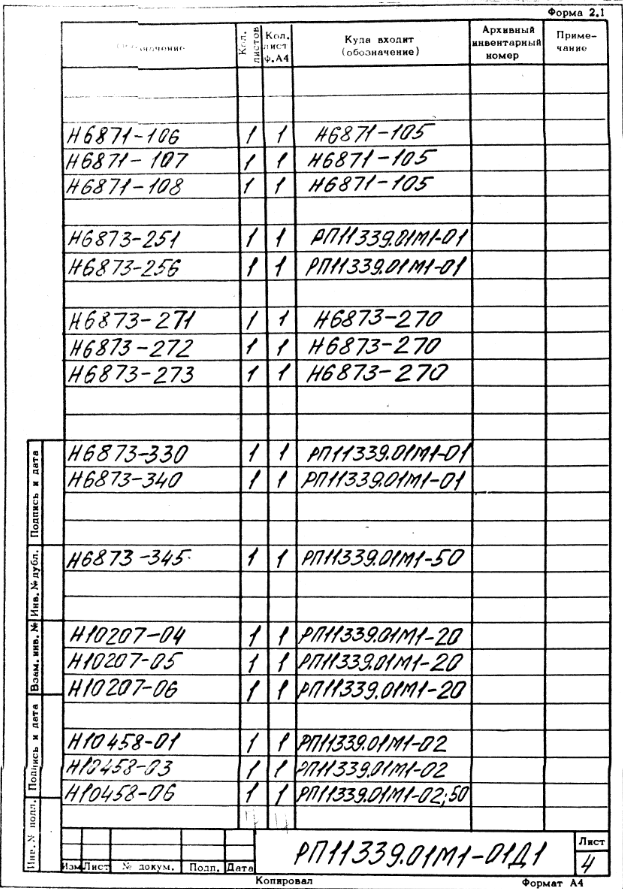 Форма 2.1
Обозначение Кол. листов Кол. лист ф.А4 Куда входит (обозначение) Архивный инвентарный номер Приме-чание
Н6871-106 1 1 Н6871-105
Н6871-107 1 1 Н6871-105
Н6871-108 1 1 Н6871-105
Н6873-251 1 1 РП11339.01М1-01
Н6873-256 1 1 РП11339.01М1-01
Н6873-271 1 1 Н6873-270
Н6873-272 1 1 Н6873-270
Н6873-273 1 1 Н6873-270
Н6873-330 1 1 РП11339.01М1-01
Н6873-340 1 1 РП11339.01М1-01
Н6873-345 1 1 РП11339.01М1-50
Н10207-04 1 1 РП11339.01М1-20
Н10207-05 1 1 РП11339.01М1-20
Н10207-06 1 1 РП11339.01М1-20
Н10458-01 1 1 РП11339.01М1-02
Н10458-03 1 1 РП11339.01М1-02
Н10458-06 1 1 РП11339.01М1-02;50
Подпись и дата
Инв. № дубл.
Взам. инв. №
Подпись и дата
Инв. № подл.
Изм Лист № докум. Подп. Дата
РП11339.01М1-01Д1
Лист
4
Копировал Формат А4